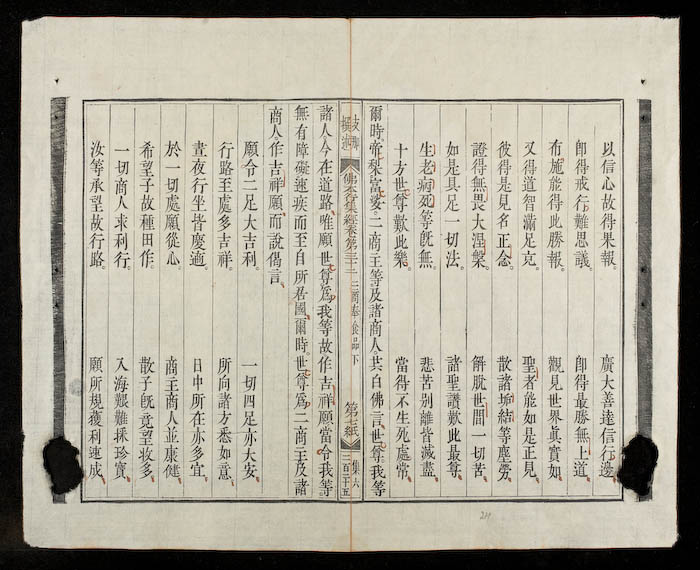 以信心故得果報。 廣大善達信行邊。
即得戒行難思議。 即得最勝無上道。
布施能得此勝報。 觀見世界眞實如。
又得道智滿足克。 聖者能如是正見。
彼得是見名正念。 散諸垢結等塵勞。
證得無畏大涅槃。 解脫世間一切苦。
如是具足一切法。 諸聖讚歎此最尊。
生老病死等旣無。 悲苦別離皆滅盡。
十方世尊歎此樂。 當得不生死處常。
爾時帝棃富婆。二商主等及諸商人。共白佛言。世尊。我等
佛本行集經卷第三十二 二商奉食品下 第七紙 集六 三百二十五
諸人今在道路。唯願世尊爲我等故作吉祥願。當令我等
無有障礙速疾而至自所居國。爾時世尊爲二商主及諸
商人作吉祥願。而說偈言。
願令二足大吉利。 一切四足亦大安。
行路至處多吉祥。 所向諸方悉如意。
晝夜行坐皆慶適。 日中所在亦多宜。
於一切處願從心。 商主商人並康健。
希望子故種田作。 散子旣竟望收多。
一切商人求利行。 入海艱難採珍寶。
汝等承望故行路。 願所規獲利速成。
211